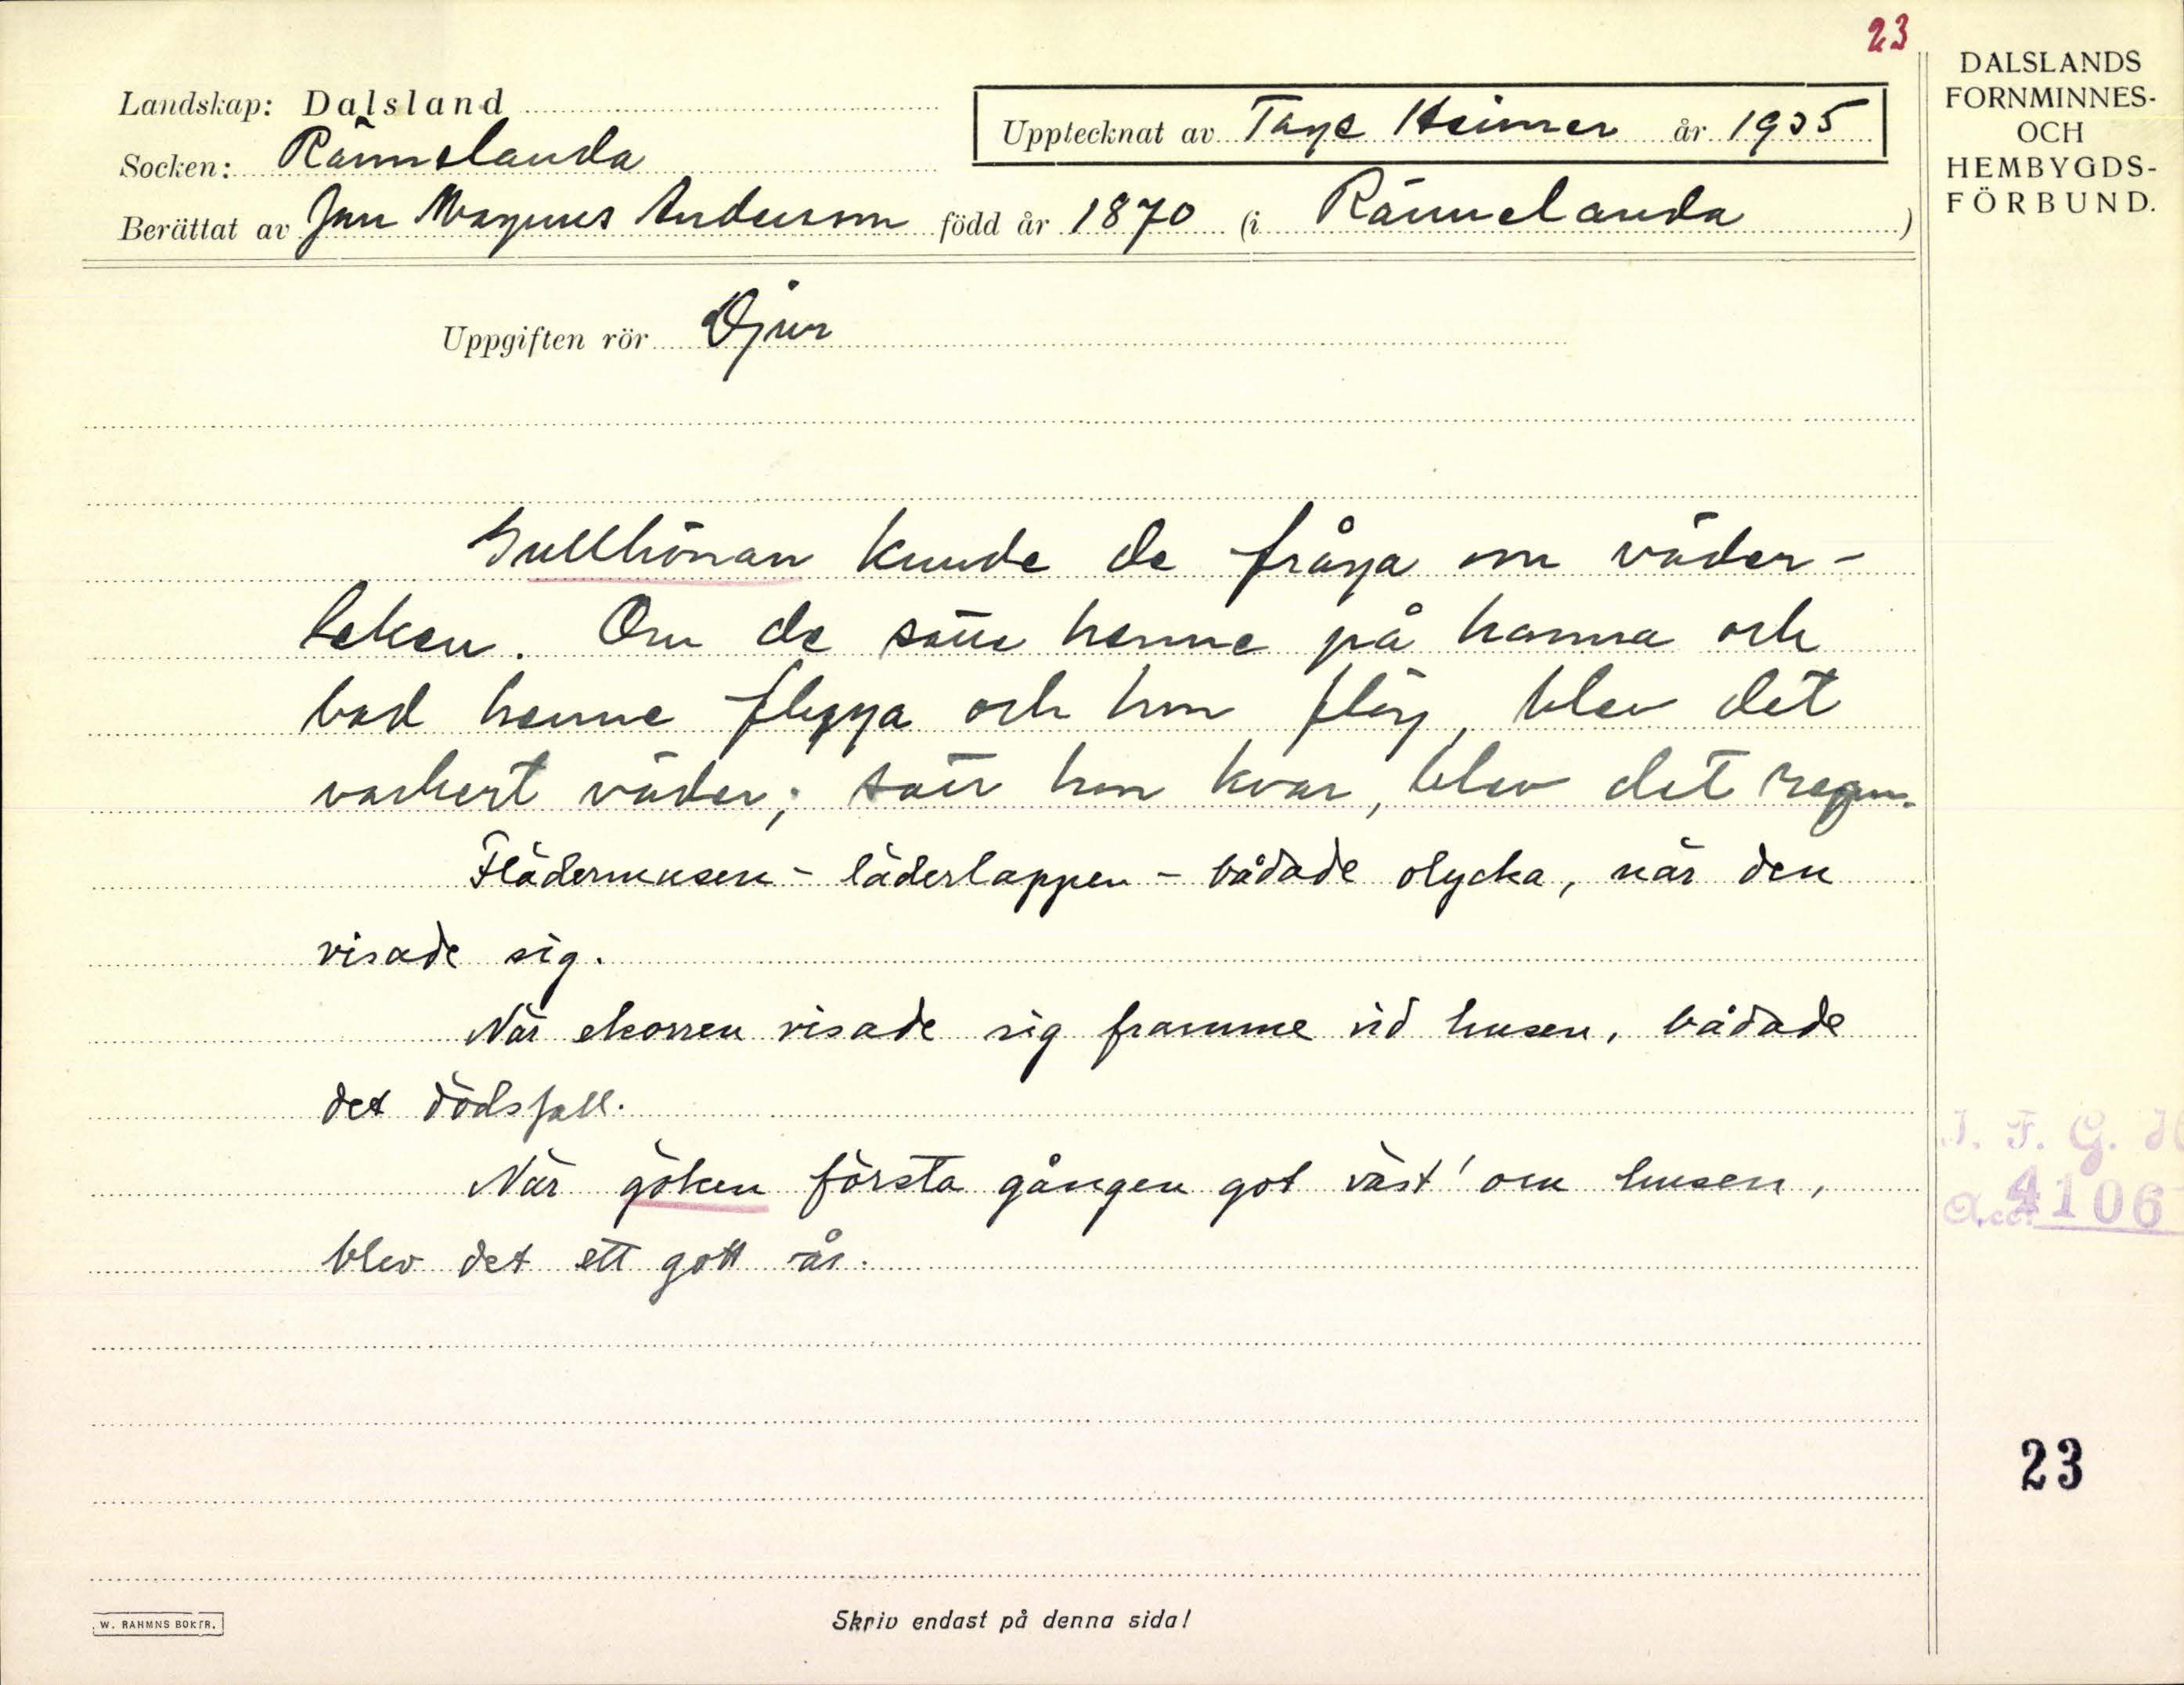 23
DALSLANDS
FORNMINNES-
OCH
HEMBYGDS-
FÖRBUND.
Landskap: Dalsland
Upptecknat av Tage Heimer år 1935
Socken: Rännelanda
Berättat av Jan Magnus Andersson född år 1870 (i Rännelanda)
Uppgiften rör Djur
Gullhönan kunde de fråga om väder-
leken. Om de satte henne på hanna och
bad henne flyga och hon flög, blev det
vackert väder; satt hon kvar, blev det regn.
Flädermusen - läderlappen - bådade olycka, när den
visade sig.
När ekorren visade sig framme vid husen, bådade
det dödsfall.
När göken första gången gol väst' om husen,
blev det ett gott år.
I. F. G. H
Acc. 4106
23
W. RAHMNS BOKTR.
Skriv endast på denna sida!